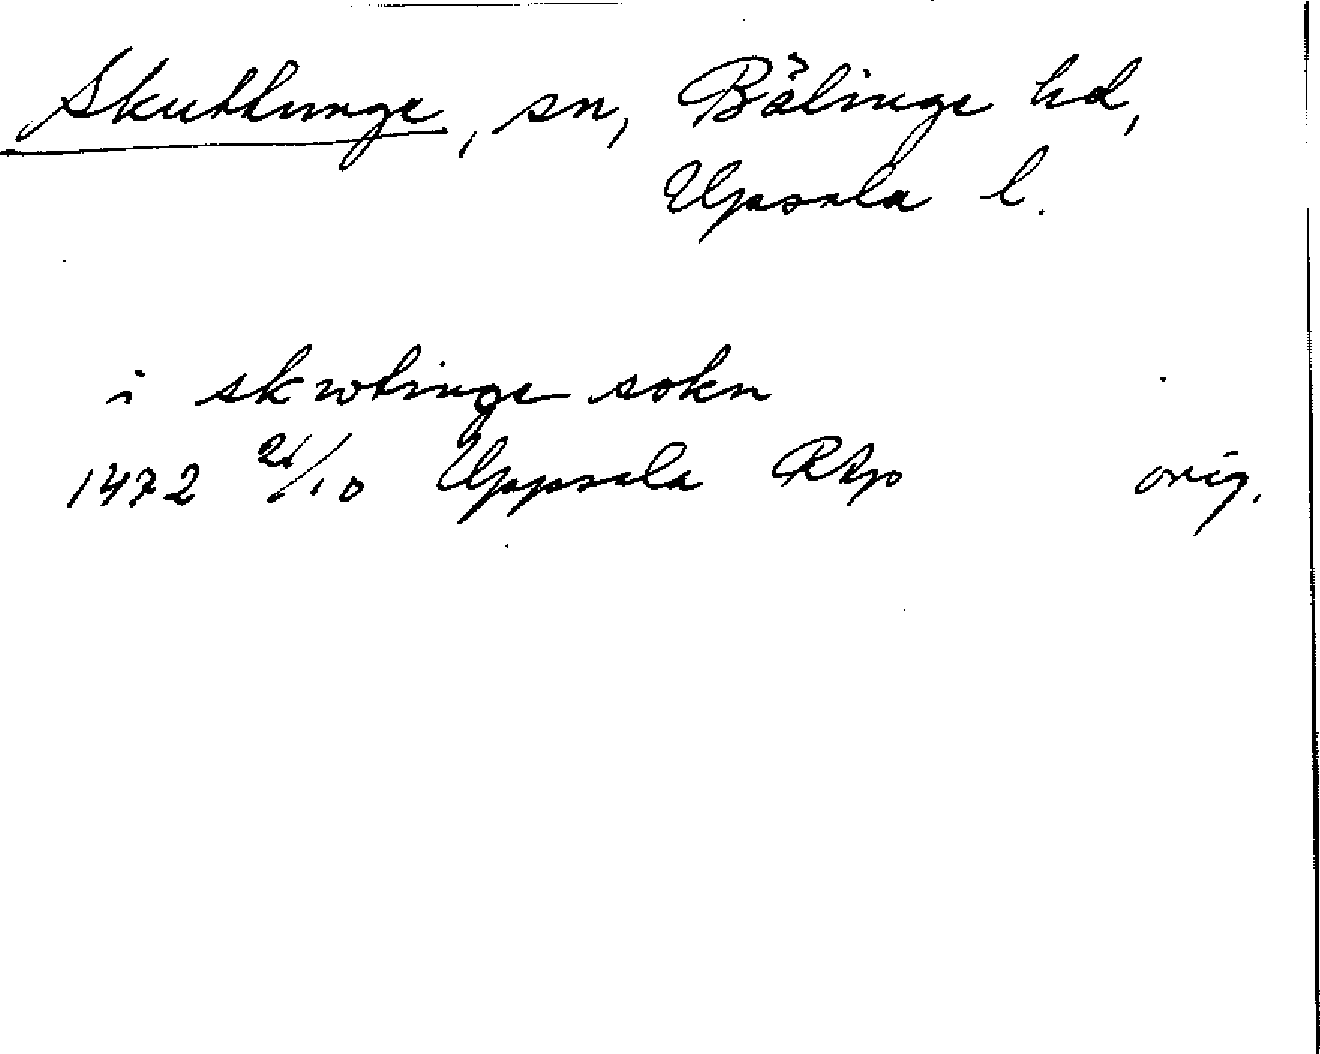 Skuttunge, sn, Bälinge hd,
Uppsala l.
i skwtinge sokn
1472 21/10 Uppsala RAp orig.